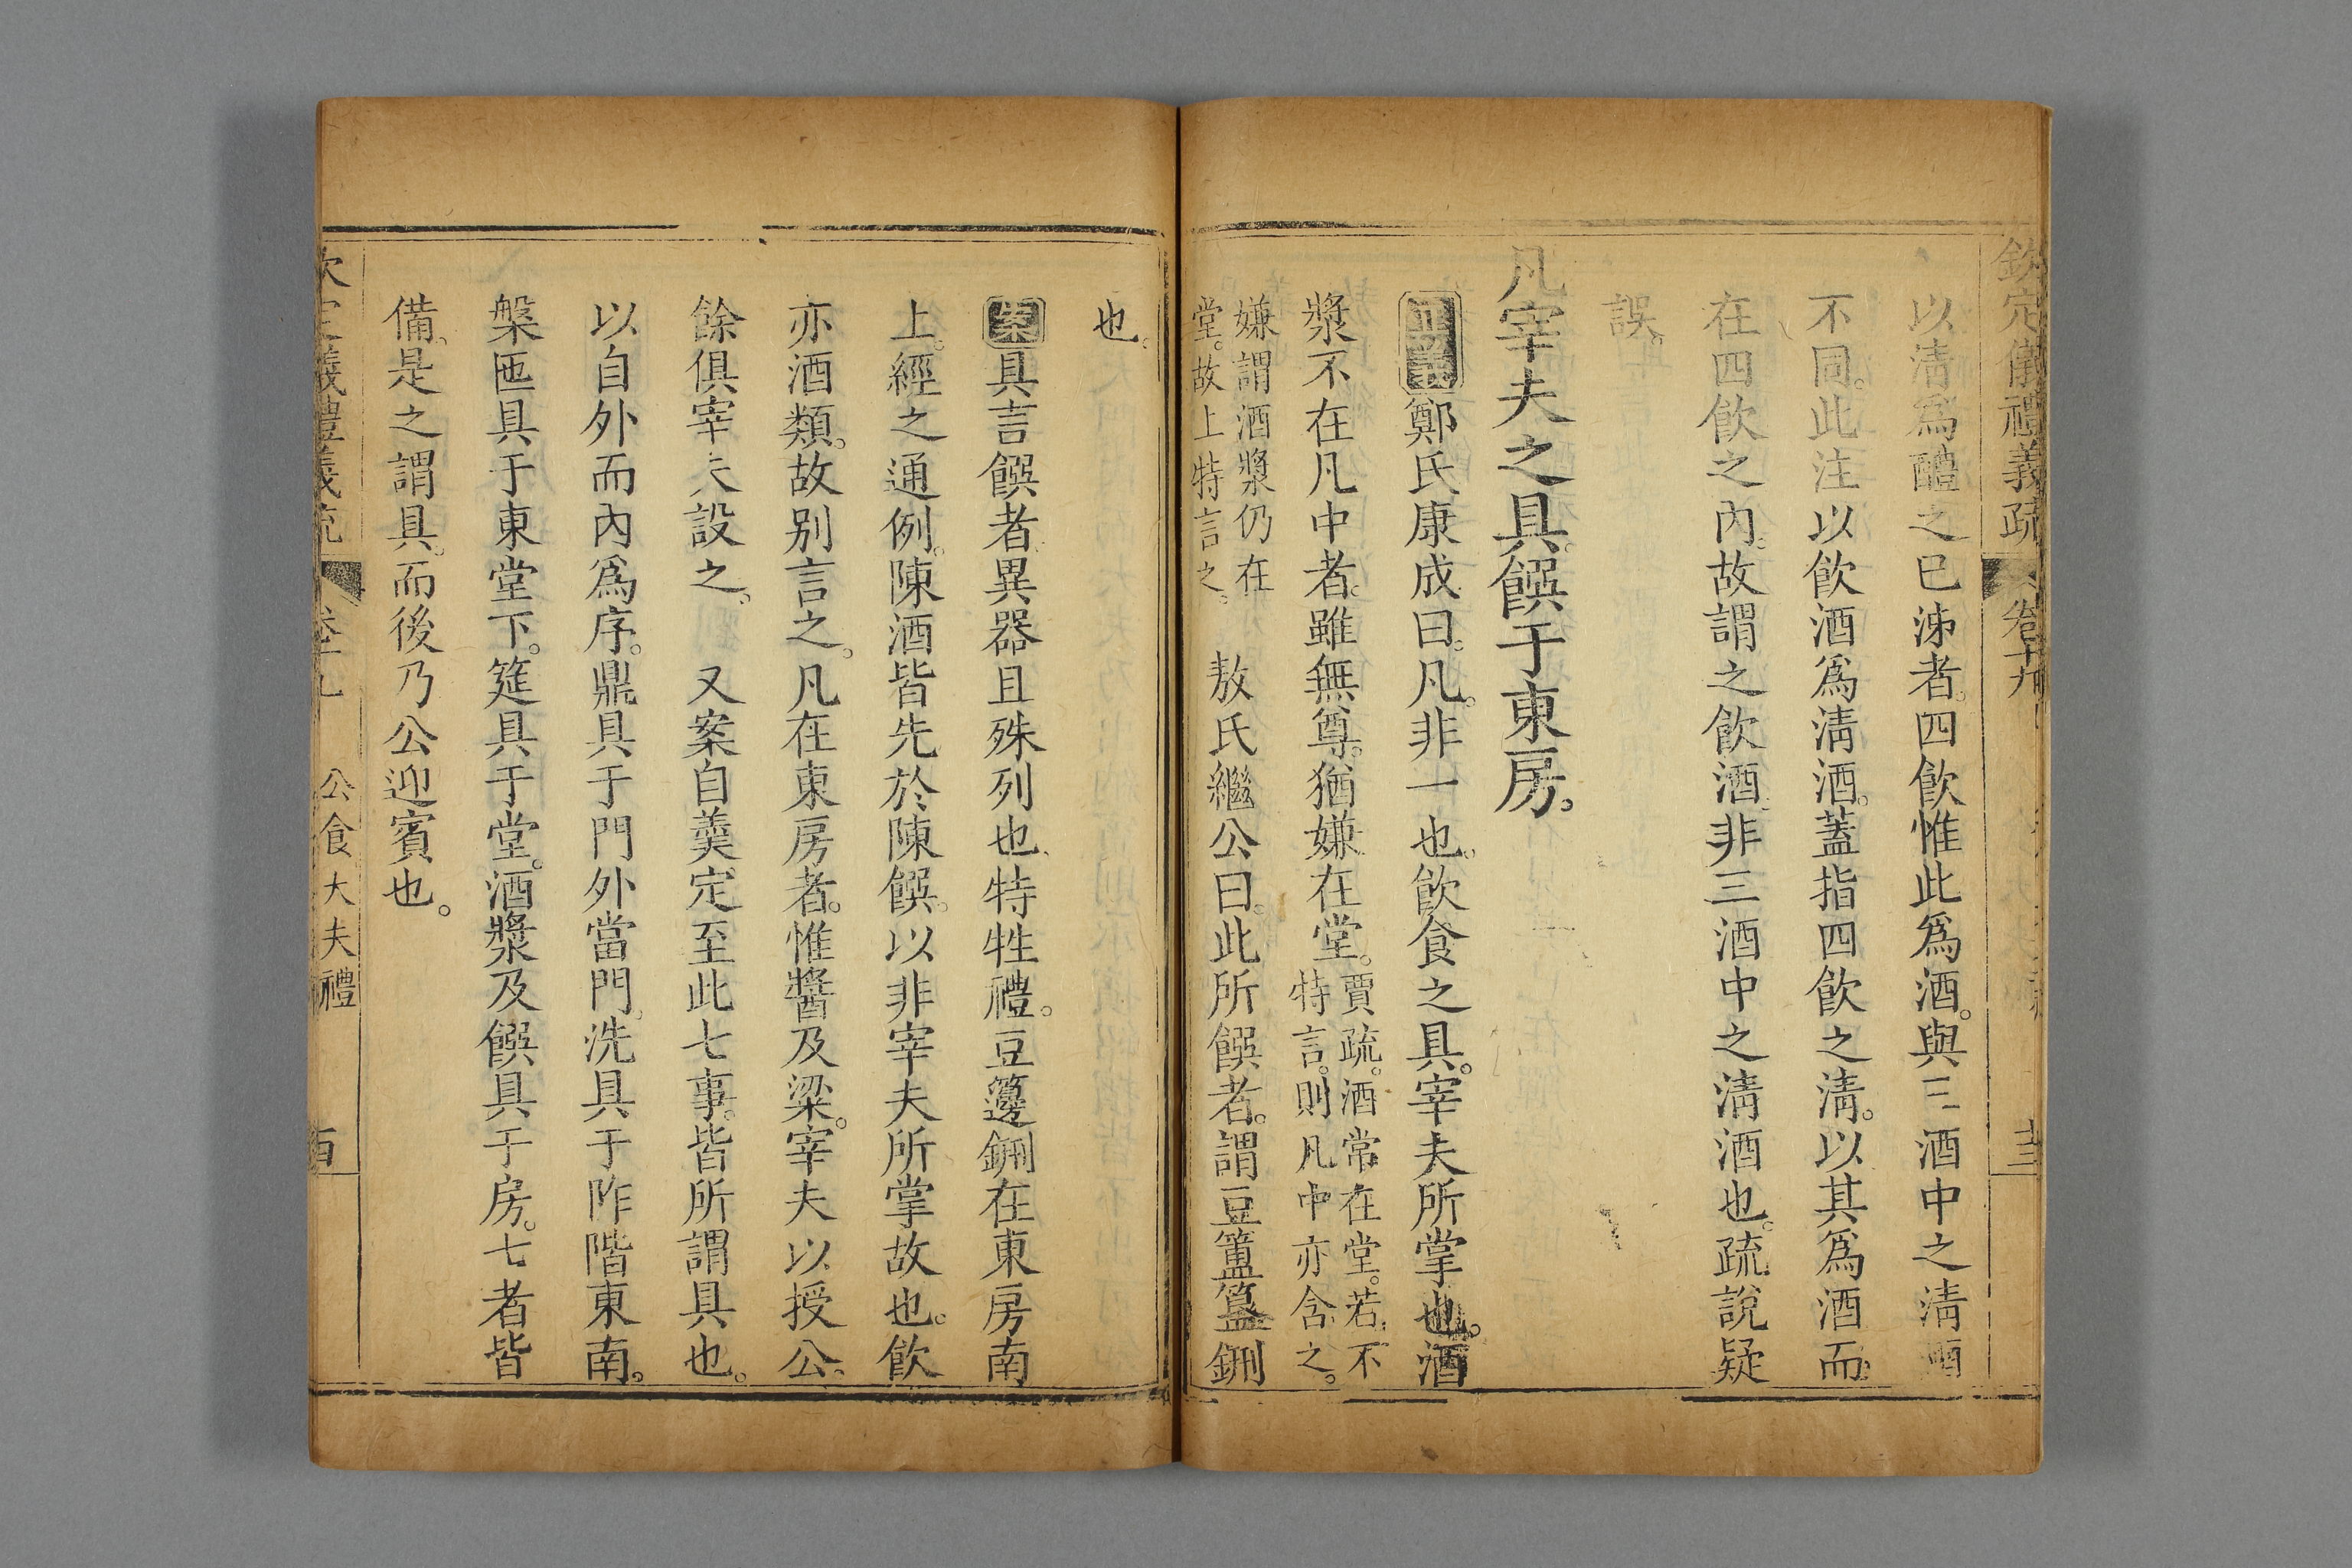 欽定儀禮義疏 卷十九 廿三
以淸爲醴之已泲者。四飮惟此爲酒。與三酒中之淸酒
不同。此注以飮酒爲淸酒。蓋指四飮之淸。以其爲酒而
在四飮之內。故謂之飮酒。非三酒中之淸酒也。疏說疑
誤。
凡宰夫之具饌于東房。
正義鄭氏康成曰。凡。非一也。飮食之具。宰夫所掌也。酒
漿不在凡中者。雖無尊。猶嫌在堂。賈疏。酒常在堂。若不
特言。則凡中亦含之。
嫌謂酒漿仍在
堂。故上特言之。 敖氏繼公曰。此所饌者。謂豆簠簋鉶
也。
案具言饌者。異器且殊列也。特牲禮。豆籩鉶在東房南
上。經之通例。陳酒皆先於陳饌。以非宰夫所掌故也。飮
亦酒類。故别言之。凡在東房者。惟醬及粱。宰夫以授公。
餘俱宰夫設之。 又案自羹定至此七事。皆所謂具也。
以自外而內爲序。鼎具于門外當門。洗具于阼階東南。
槃匜具于東堂下。筵具于堂。酒漿及饌具于房。七者皆
備。是之謂具。而後乃公迎賓也。
公食大夫禮